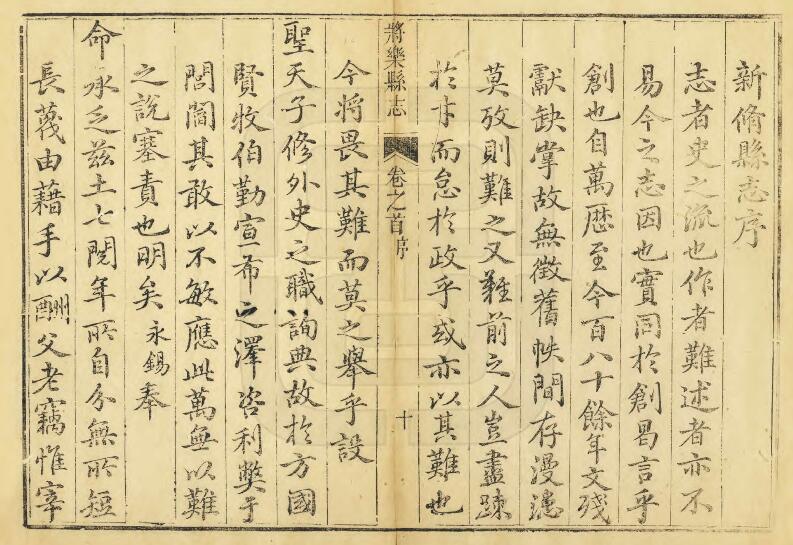 新脩縣志序
志者史之流也作者難述者亦不
易今之志因也實同於創曷言乎
創也自萬歷至今百八十餘年文殘
獻缺掌故無徵舊帙間存漫漶
莫攷則難之又難前之人豈盡踈
於才而怠於政乎或亦以其難也
將樂縣志
卷之首 序
十
今將畏其難而莫之舉乎設
聖天子修外史之職詢典故於方國
賢牧伯勤宣布之澤咨利弊于
閭閻其敢以不敏應此萬無以難
之說塞責也明矣 永錫奉
命承乏茲土七閱年所自分無所短
長蔑由藉手以酬父老竊惟宰